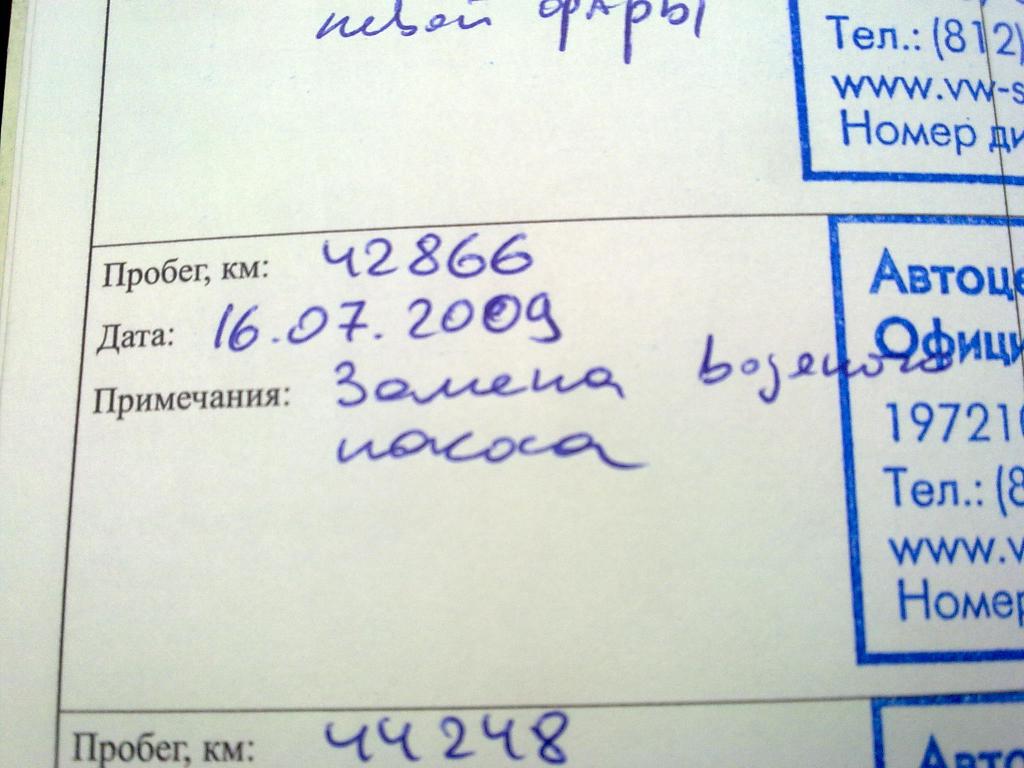 левой фары
Тел.: (812)
www.vw-s
Номер ди
Пробег, км: 42866
Дата: 16.07.2009
Примечания: Замена водяного
насоса
Автоце
Офици
19721
Тел.: (8
www.v
Номер
Пробег, км: 44248
Авто